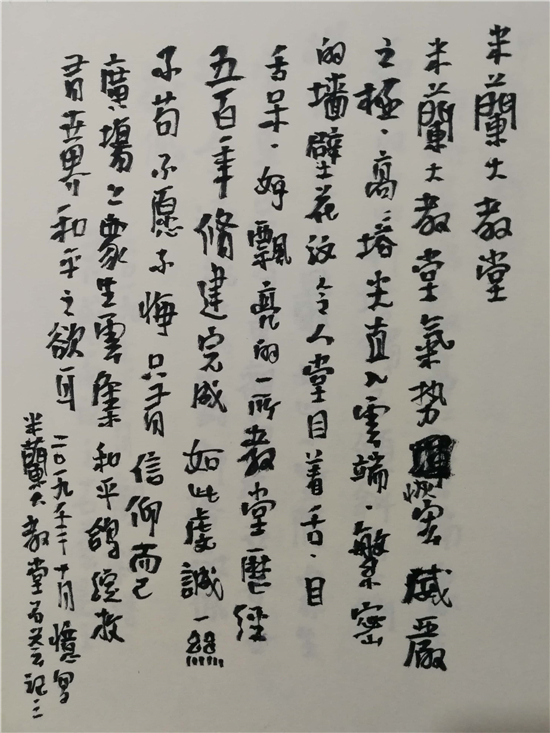 米蘭大教堂
米蘭大教堂氣势恢宏威嚴
之極·高塔尖直入雲端·繁密
的墙壁花紋令人堂目着舌·目
舌呆·好飄亮的一所教堂歷經
五百年修建完成如此虔誠一絲
不苟不愿不悔只有信仰而已
廣場上衆生雲集和平鴿放
有世界和平之欲耳
二〇一九年十月憶寫
米蘭大教堂記之